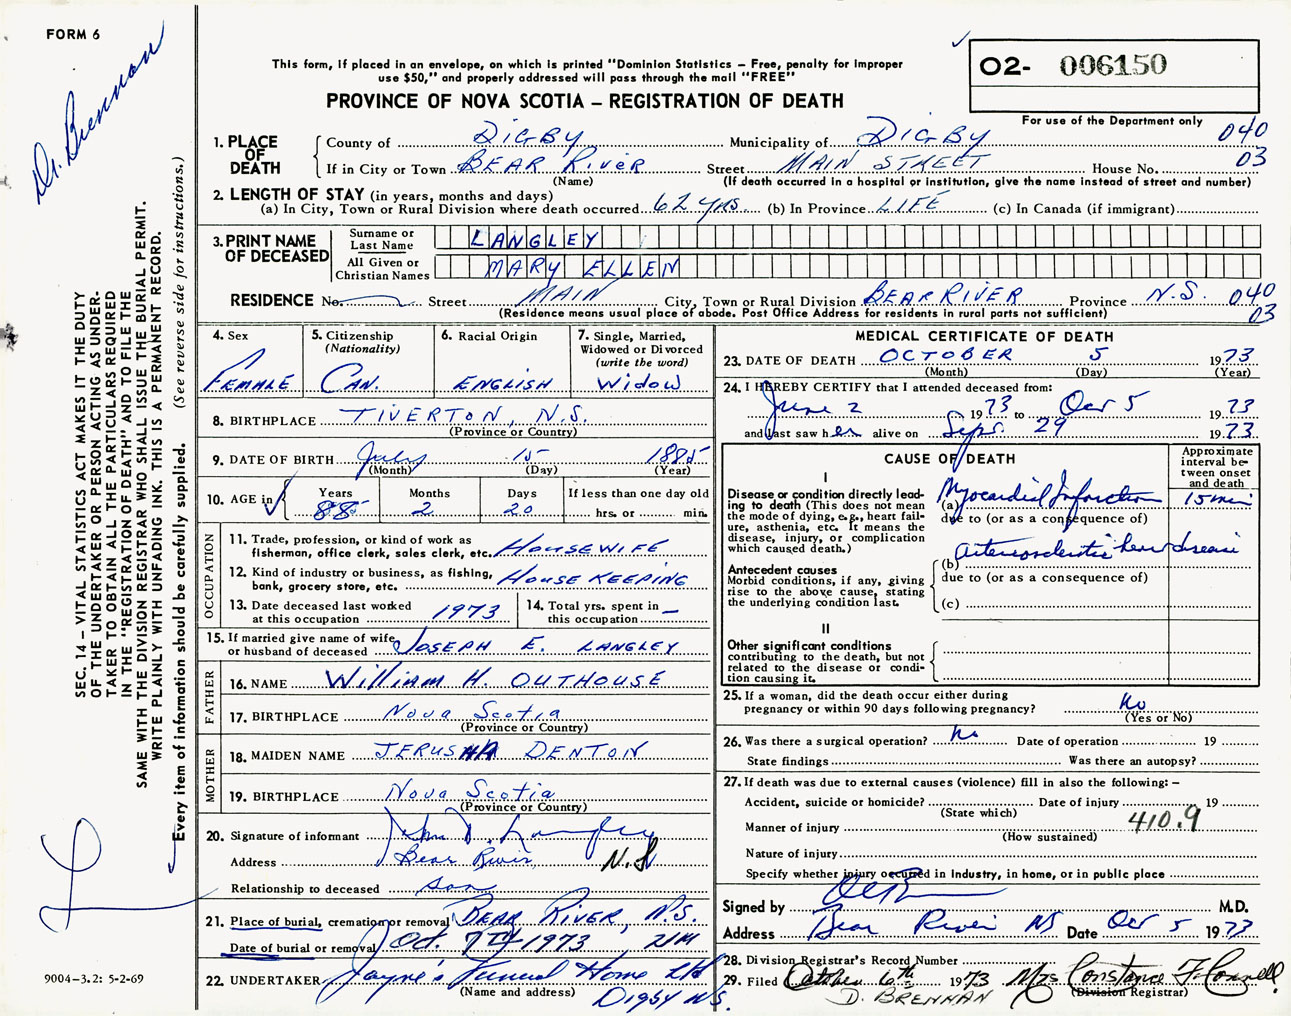 FORM 6
Dr. Brennan
SEC. 14 – VITAL STATISTICS ACT MAKES IT THE DUTY
OF THE UNDERTAKER OR PERSON ACTING AS UNDER-
TAKER TO OBTAIN ALL THE PARTICULARS REQUIRED
IN THE "REGISTRATION OF DEATH" AND TO FILE THE
SAME WITH THE DIVISION REGISTRAR WHO SHALL ISSUE THE BURIAL PERMIT.
WRITE PLAINLY WITH UNFADING INK. THIS IS A PERMANENT RECORD.
Every item of information should be carefully supplied. (See reverse side for instructions.)
9004-3.2: 5-2-69
This form, if placed in an envelope, on which is printed "Dominion Statistics – Free, penalty for improper
use $50," and properly addressed will pass through the mail "FREE"
PROVINCE OF NOVA SCOTIA – REGISTRATION OF DEATH
02- 006150
For use of the Department only
040
03
1. PLACE OF DEATH
County of DIGBY Municipality of DIGBY
If in City or Town BEAR RIVER Street MAIN STREET House No.
(Name) (If death occurred in a hospital or institution, give the name instead of street and number)
2. LENGTH OF STAY (in years, months and days)
(a) In City, Town or Rural Division where death occurred 62 yrs. (b) In Province LIFE (c) In Canada (if immigrant)
3. PRINT NAME OF DECEASED
Surname or Last Name LANGLEY
All Given or Christian Names MARY ELLEN
RESIDENCE No. Street MAIN City, Town or Rural Division BEAR RIVER Province N.S. 040
(Residence means usual place of abode. Post Office Address for residents in rural parts not sufficient) 03
4. Sex
FEMALE
5. Citizenship
(Nationality)
CAN.
6. Racial Origin
ENGLISH
7. Single, Married,
Widowed or Divorced
(write the word)
WIDOW
8. BIRTHPLACE TIVERTON, N.S.
(Province or Country)
9. DATE OF BIRTH July 15 1885
(Month) (Day) (Year)
10. AGE in Years 88 Months 2 Days 20 If less than one day old
hrs. or min.
OCCUPATION
11. Trade, profession, or kind of work as
fisherman, office clerk, sales clerk, etc. HOUSEWIFE
12. Kind of industry or business, as fishing,
bank, grocery store, etc. HOUSE KEEPING
13. Date deceased last worked
at this occupation 1973
14. Total yrs. spent in
this occupation –
15. If married give name of wife
or husband of deceased JOSEPH E. LANGLEY
FATHER
16. NAME WILLIAM H. OUTHOUSE
17. BIRTHPLACE Nova Scotia
(Province or Country)
MOTHER
18. MAIDEN NAME JERUSHA DENTON
19. BIRTHPLACE Nova Scotia
(Province or Country)
20. Signature of informant Langley
Address Bear River N.S
Relationship to deceased son
21. Place of burial, cremation or removal BEAR RIVER, N.S.
Date of burial or removal Oct. 7TH 1973 2PM
22. UNDERTAKER Jayne's Funeral Home Ltd
(Name and address) Digby N.S.
MEDICAL CERTIFICATE OF DEATH
23. DATE OF DEATH OCTOBER 5 1973
(Month) (Day) (Year)
24. I HEREBY CERTIFY that I attended deceased from:
June 2 1973 to Oct 5 1973
and last saw her alive on Sept. 29 1973
CAUSE OF DEATH
Approximate
interval be-
tween onset
and death
I
Disease or condition directly lead-
ing to death (This does not mean
the mode of dying, e.g., heart fail-
ure, asthenia, etc. It means the
disease, injury, or complication
which caused death.)
(a) Myocardial Infarction 15 min
due to (or as a consequence of)
Antecedent causes
Morbid conditions, if any, giving
rise to the above cause, stating
the underlying condition last.
(b) arteriosclerotic heart disease
due to (or as a consequence of)
(c)
II
Other significant conditions
contributing to the death, but not
related to the disease or condi-
tion causing it.
25. If a woman, did the death occur either during
pregnancy or within 90 days following pregnancy? No
(Yes or No)
26. Was there a surgical operation? No Date of operation 19
State findings Was there an autopsy?
27. If death was due to external causes (violence) fill in also the following: –
Accident, suicide or homicide? Date of injury 19
(State which)
Manner of injury 410.9
(How sustained)
Nature of injury
Specify whether injury occurred in Industry, in home, or in public place
Signed by M.D.
Address Bear River NS Date Oct 5 1973
28. Division Registrar's Record Number
29. Filed October 6th 1973 Mrs Constance F. Connell
(Division Registrar)
D. BRENNAN